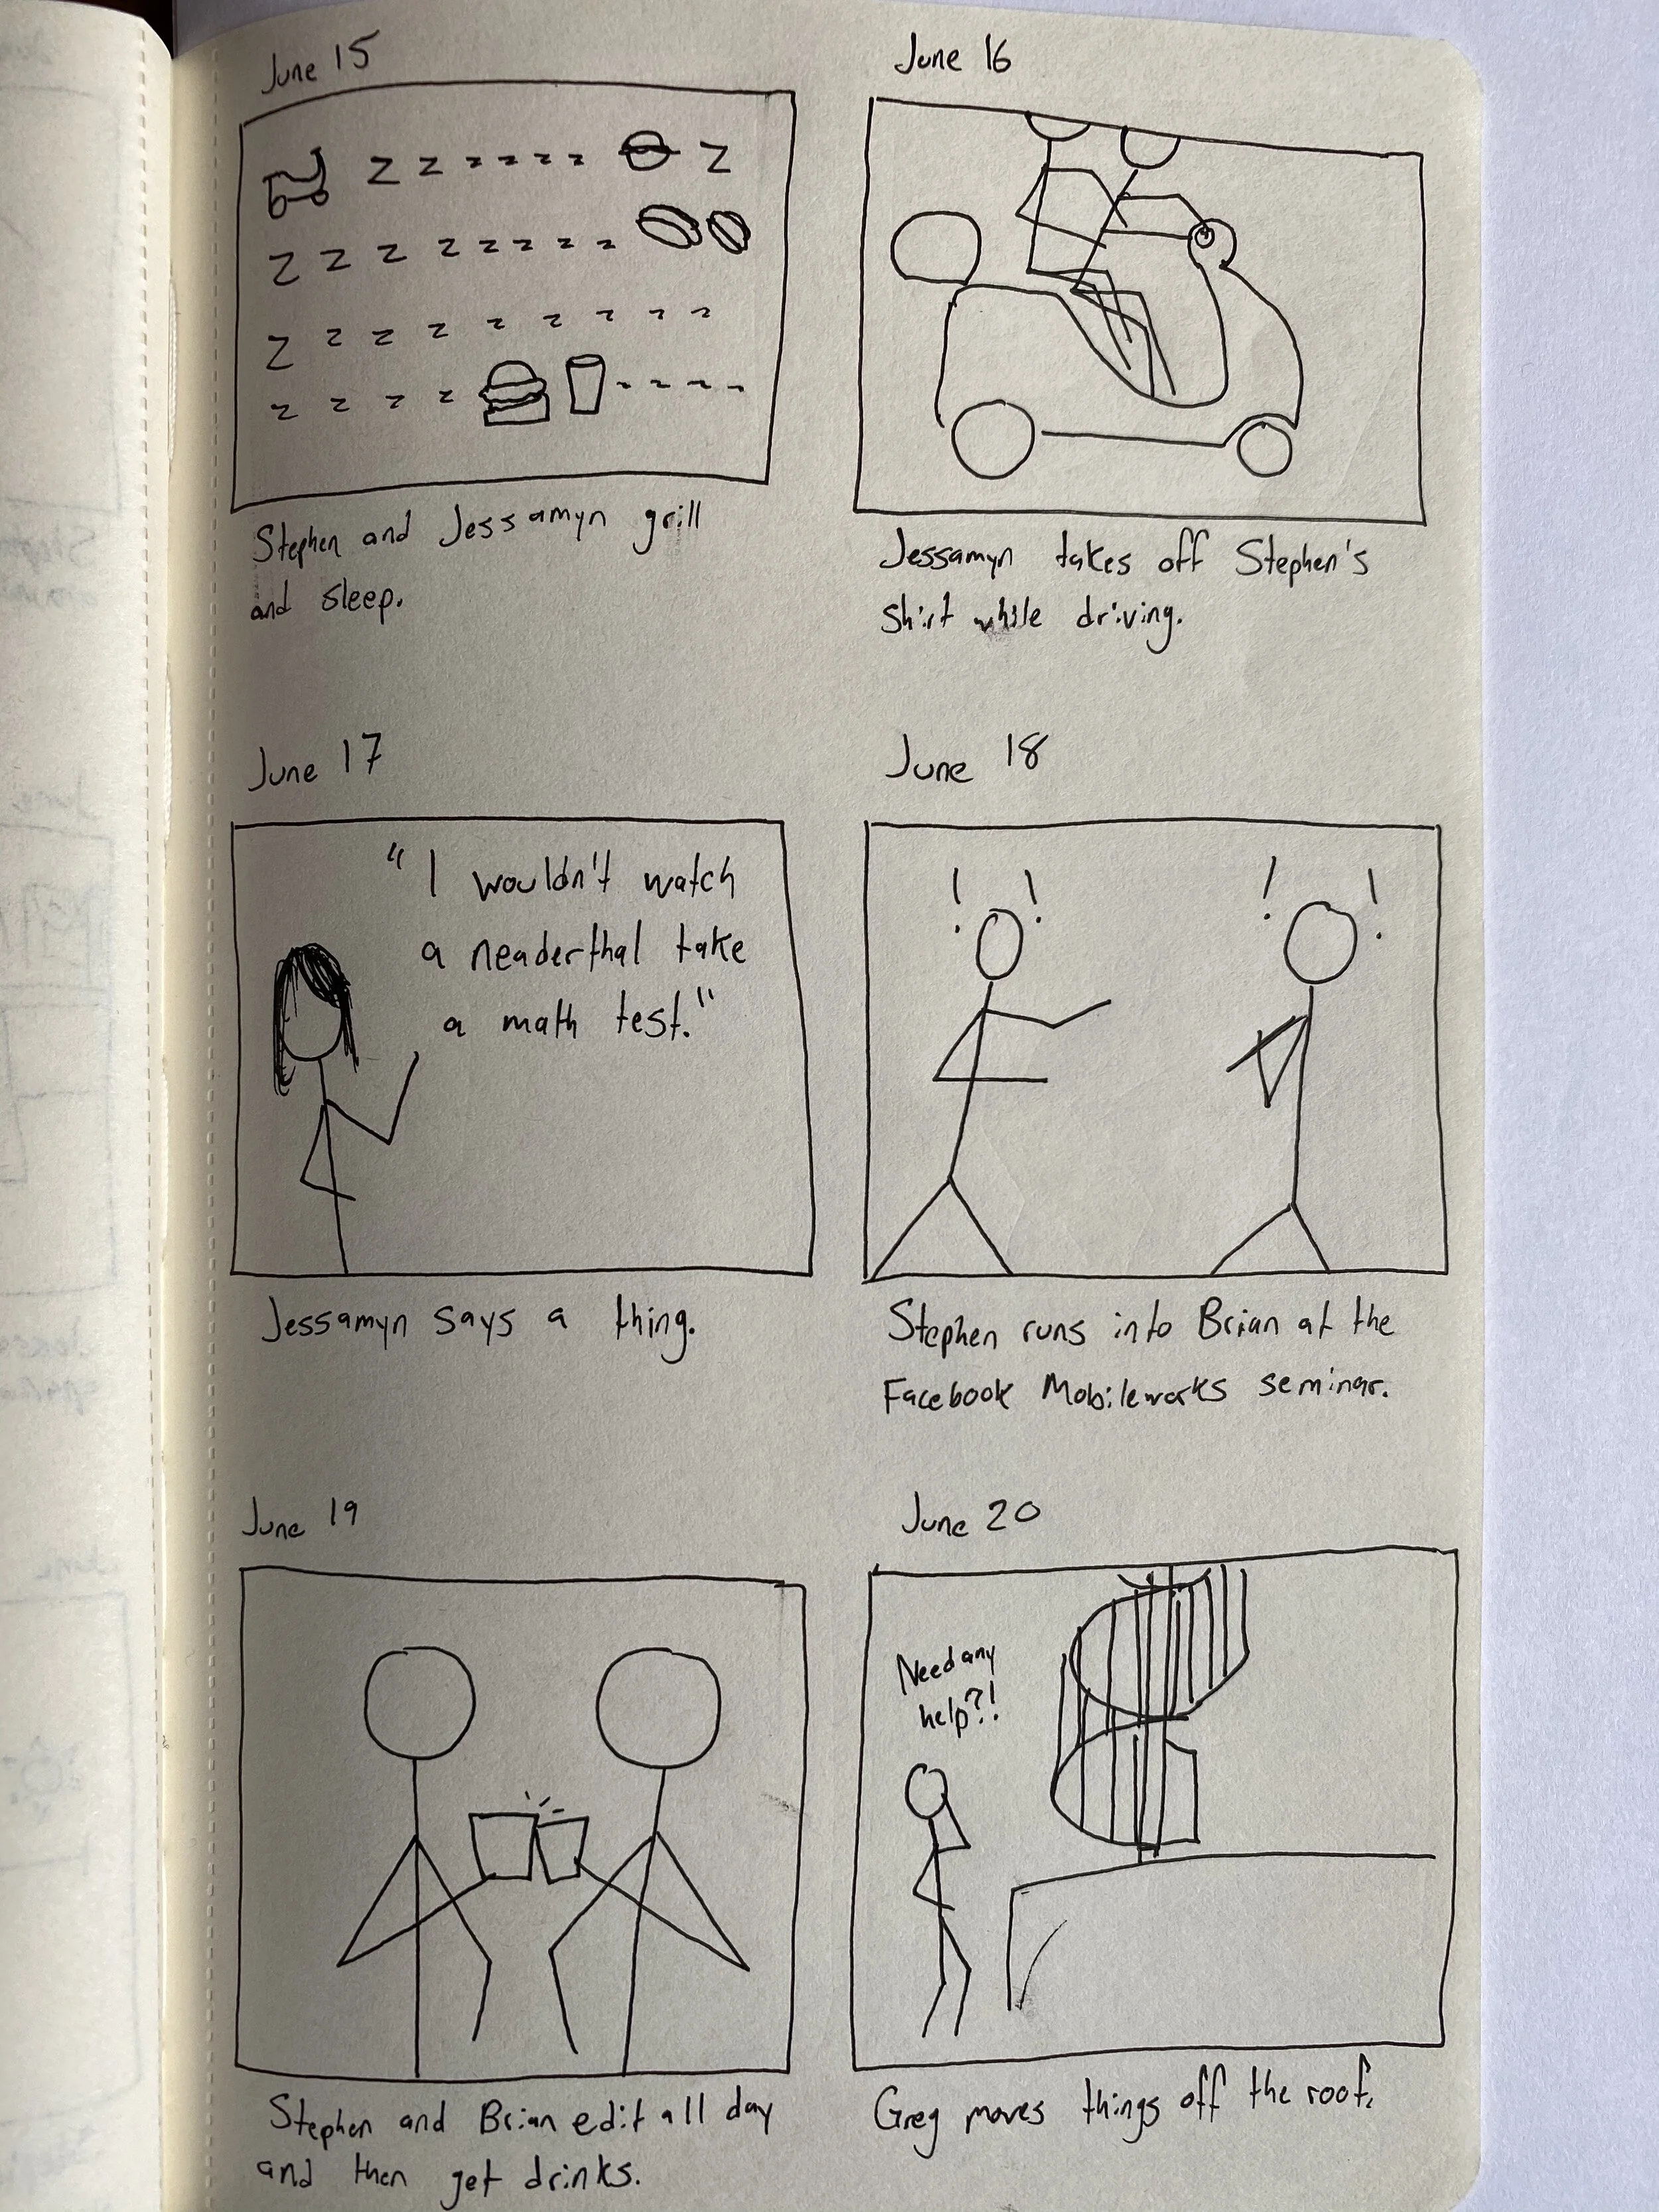 June 15
z z z z z z z
z z z z z z z z z
z z z z z z z z z
z z z z z z z z
Stephen and Jessamyn grill
and sleep.
June 16
Jessamyn takes off Stephen's
shirt while driving.
June 17
"I wouldn't watch
a neaderthal take
a math test."
Jessamyn says a thing.
June 18
! ! ! !
Stephen runs into Brian at the
Facebook Mobileworks seminar.
June 19
Stephen and Brian edit all day
and then get drinks.
June 20
Need any
help?!
Greg moves things off the roof.